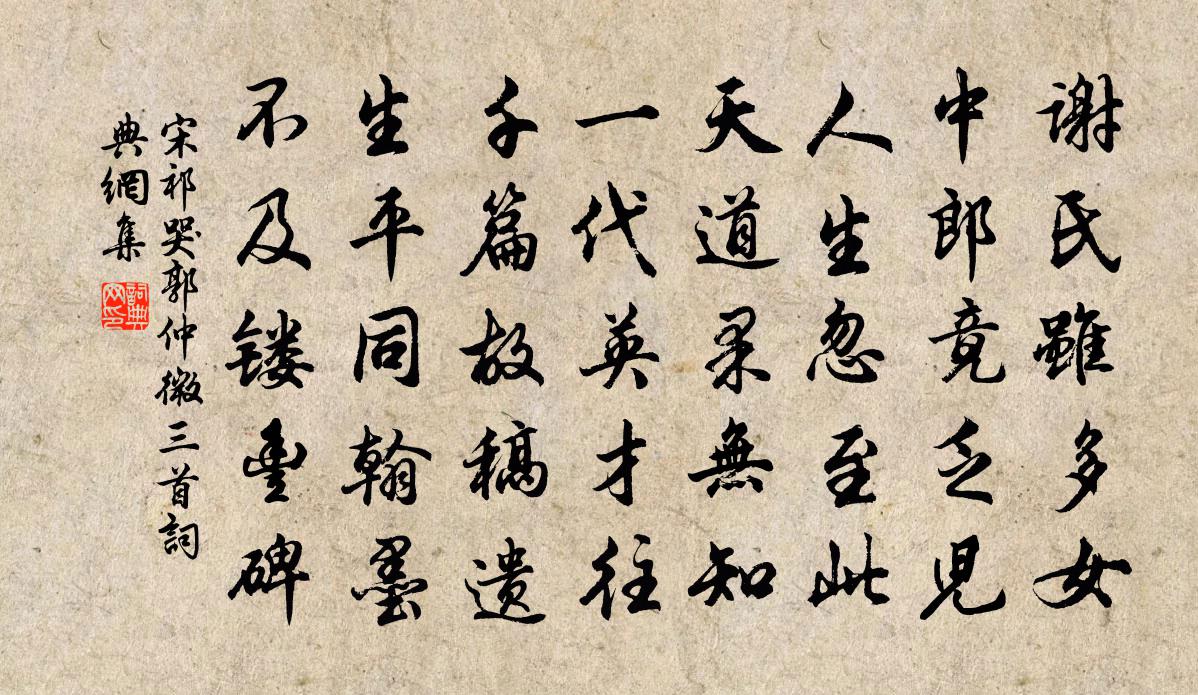 謝氏雖多女
中郎竟乏兒
人生忽至此
天道果無知
一代英才往
千篇故稿遗
生平同翰墨
不及镂豐碑
宋祁哭郭仲微三首詞
典網集
詞典网印